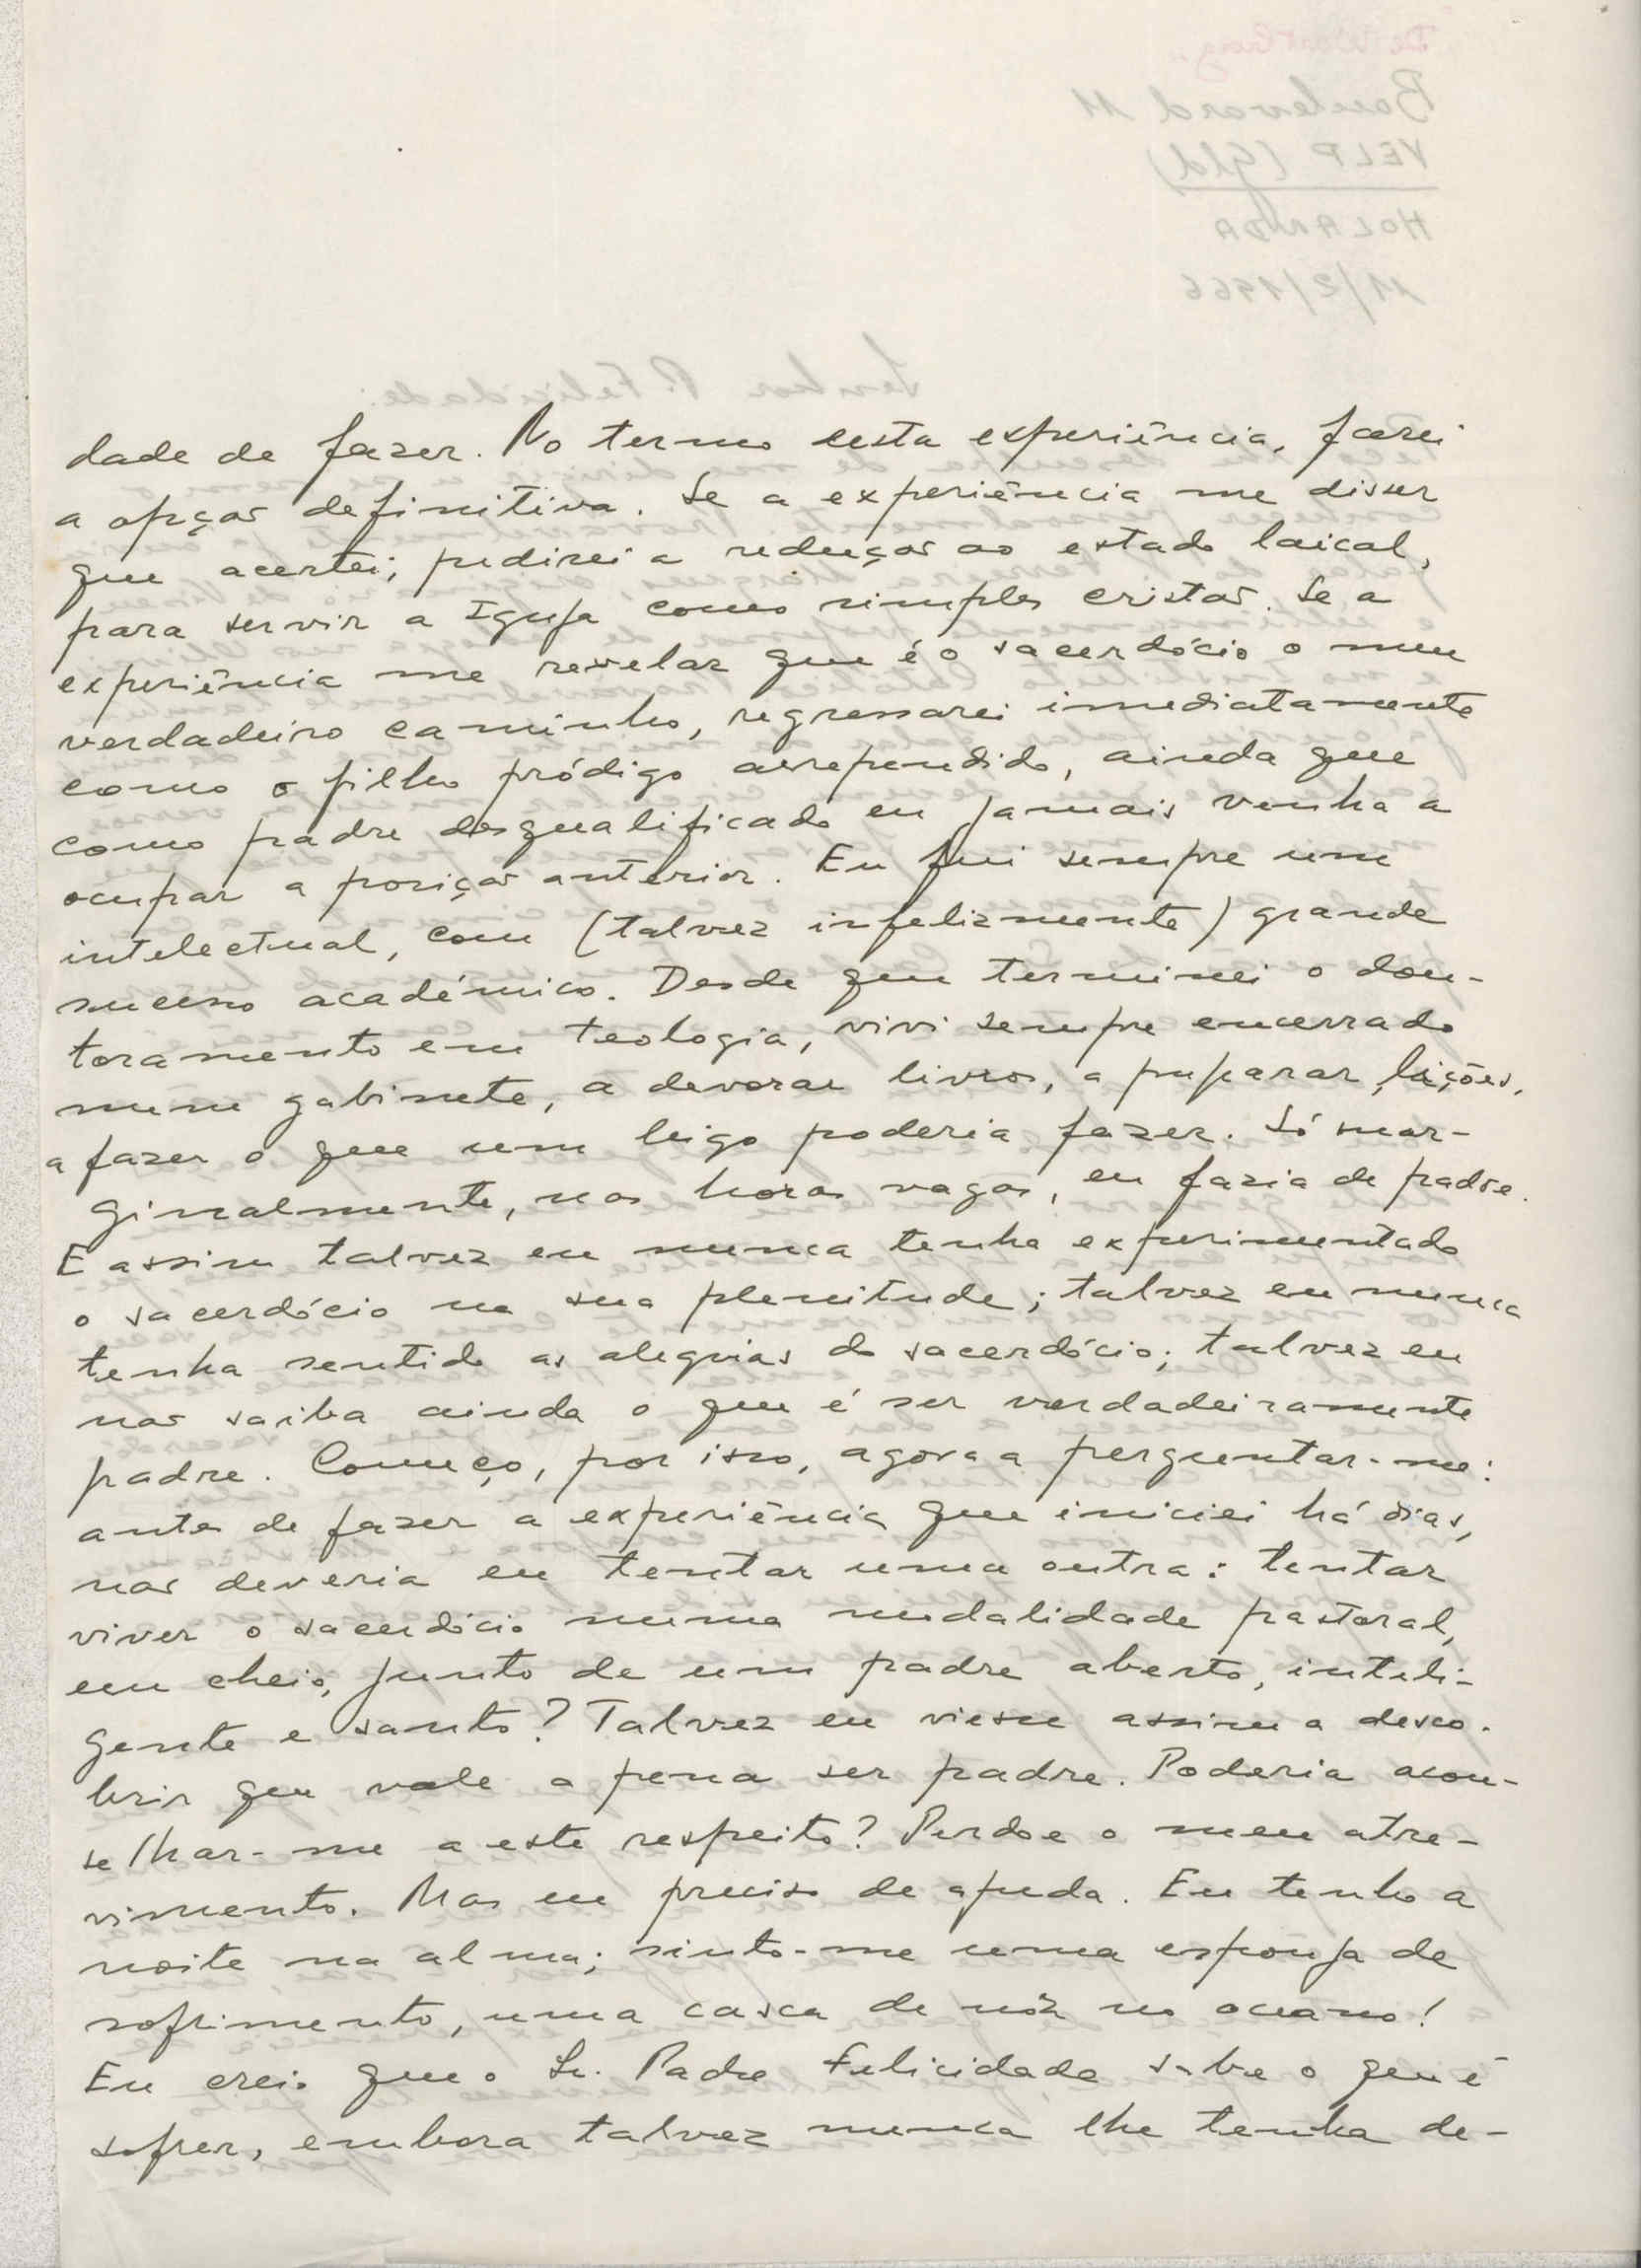 dade de fazer. No termo desta experiência, farei
a opção definitiva. Se a experiência me disser
que acertei, pedirei a redução ao estado laical,
para servir a Igreja como simples cristão. Se a
experiência me revelar que é o sacerdócio o meu
verdadeiro caminho, regressarei imediatamente
como o filho pródigo arrependido, ainda que
como padre desqualificado eu jamais venha a
ocupar a posição anterior. Eu fui sempre um
intelectual, com (talvez infelizmente) grande
sucesso académico. Desde que terminei o dou-
toramento em teologia, vivi sempre encerrado
num gabinete, a devorar livros, a preparar lições,
a fazer o que um leigo poderia fazer. Só mar-
ginalmente, nas horas vagas, eu fazia de padre.
E assim talvez eu nunca tenha experimentado
o sacerdócio na sua plenitude; talvez eu nunca
tenha sentido as alegrias do sacerdócio; talvez eu
não saiba ainda o que é ser verdadeiramente
padre. Começo, por isso, agora a perguntar-me:
antes de fazer a experiência que iniciei há dias,
não deveria eu tentar uma outra: tentar
viver o sacerdócio numa modalidade pastoral,
em cheio, junto de um padre aberto, inteli-
gente e santo? Talvez eu viesse assim a desco-
brir que vale a pena ser padre. Poderia acon-
selhar-me a este respeito? Perdoe o meu atre-
vimento. Mas eu preciso de ajuda. Eu tenho a
noite na alma; sinto-me uma esponja de
sofrimento, uma casca de nóz no oceano!
Eu creio que o Sr. Padre Felicidade sabe o que é
sofrer, embora talvez nunca lhe tenha de-